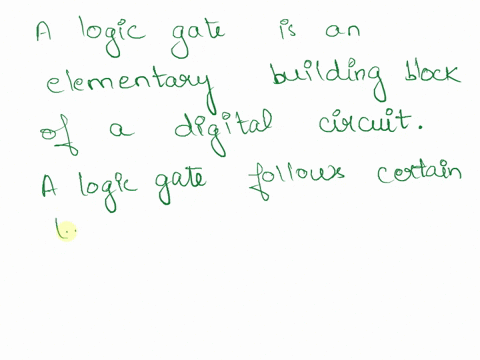 A logic gate is an
elementary building block
of a digital circuit.
A logic gate follows certain